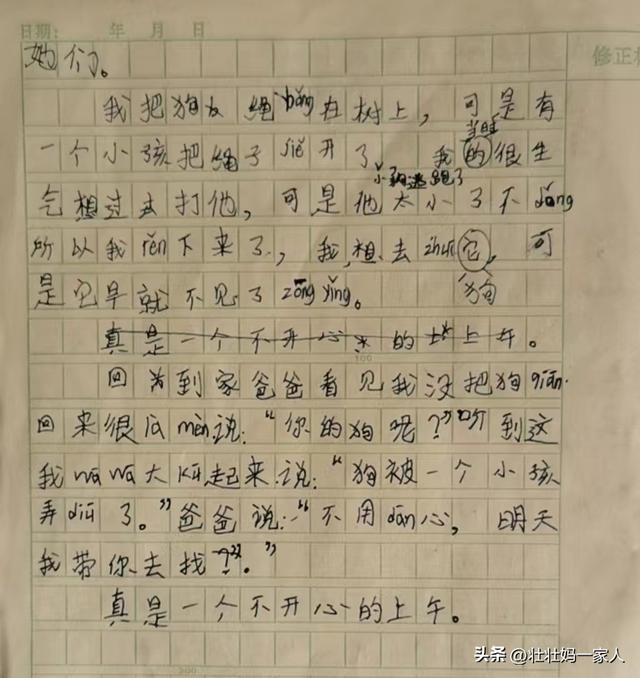 日期： 年 月 日
修正栏
她们。
我把狗友绳bǎng在树上，可是有
当时
一个小孩把绳子jiě开了 我的很生
小狗逃跑了
气想过去打他，可是他太小了不dǒng
所以我rěn下来了，我想去zhuī它，可
是它早就不见了zōng yǐng。 狗
真是一个不开心的上午。
100
回到家爸爸看见我没把狗qiān
回来很瓜mèn说：“你的狗呢？”听到这
我wa wa大kū起来说：“狗被一个小孩
弄diū了。”爸爸说：“不用dān心，明天
我带你去找？。”
真是一个不开心的上午。
头条 @壮壮妈一家人